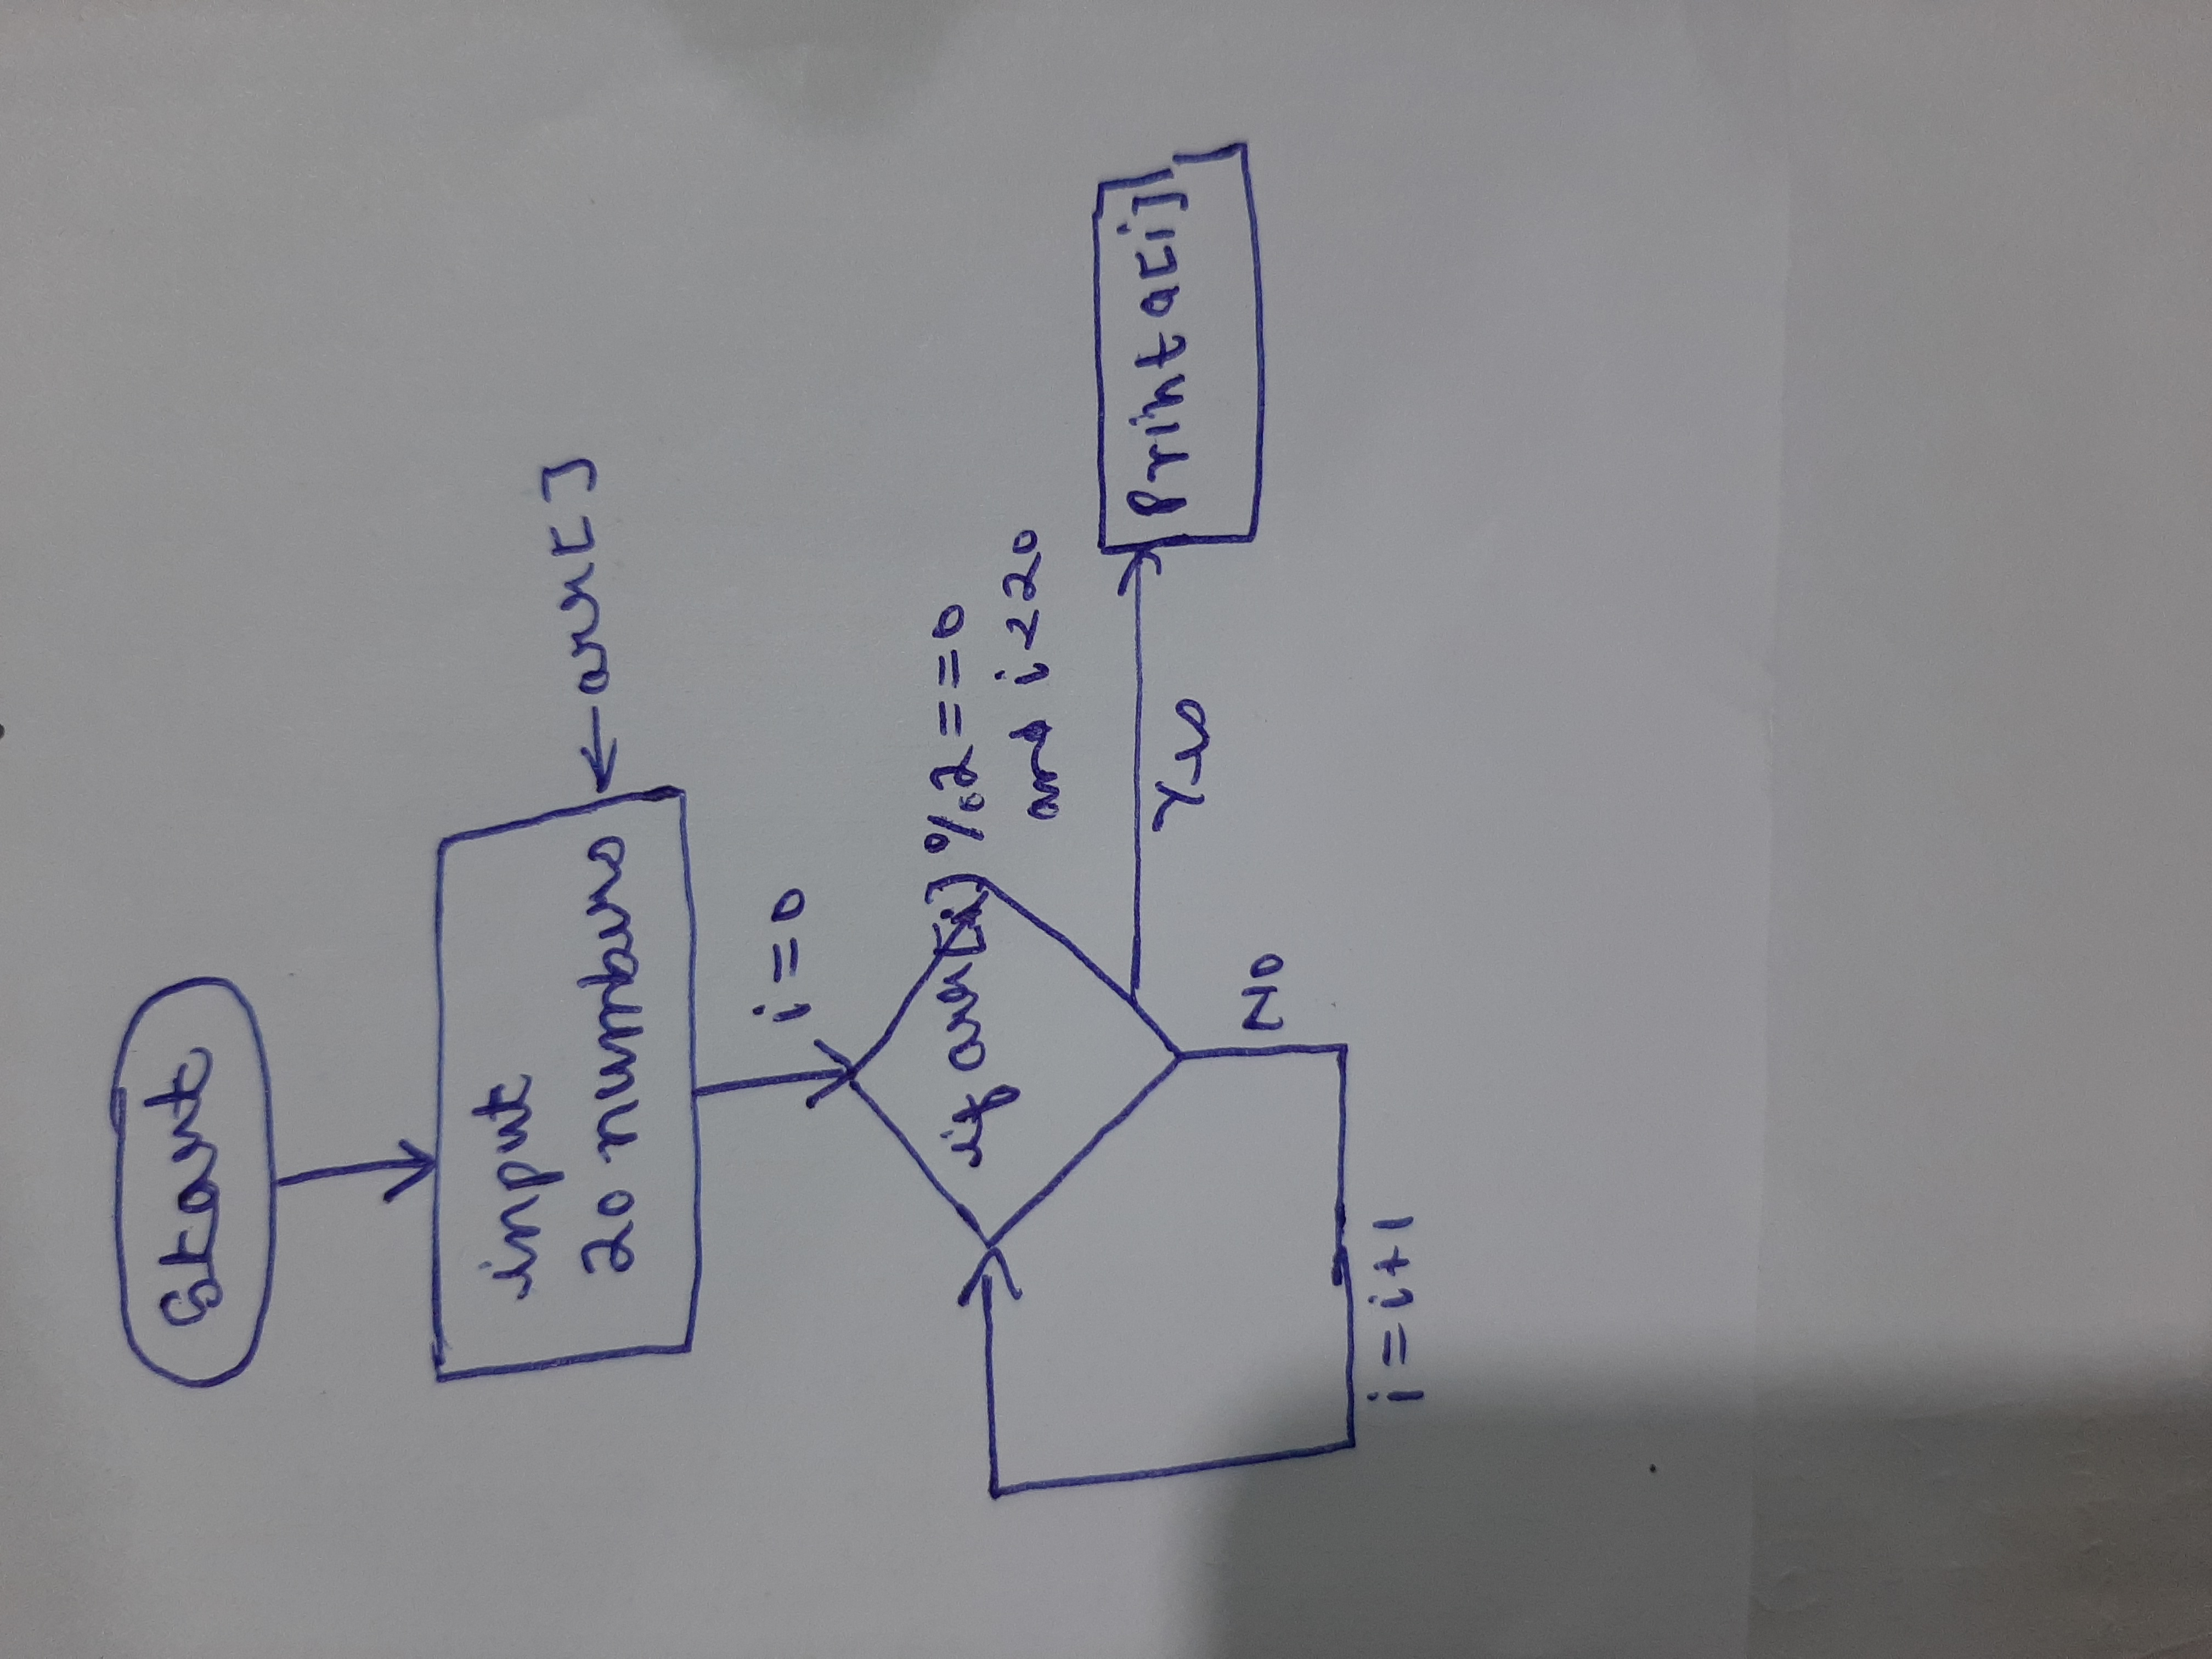 Start
input
20 numbers
← arr[]
i=0
if arr[i] %2==0
and i<20
Yes
Print a[i]
NO
i=i+1